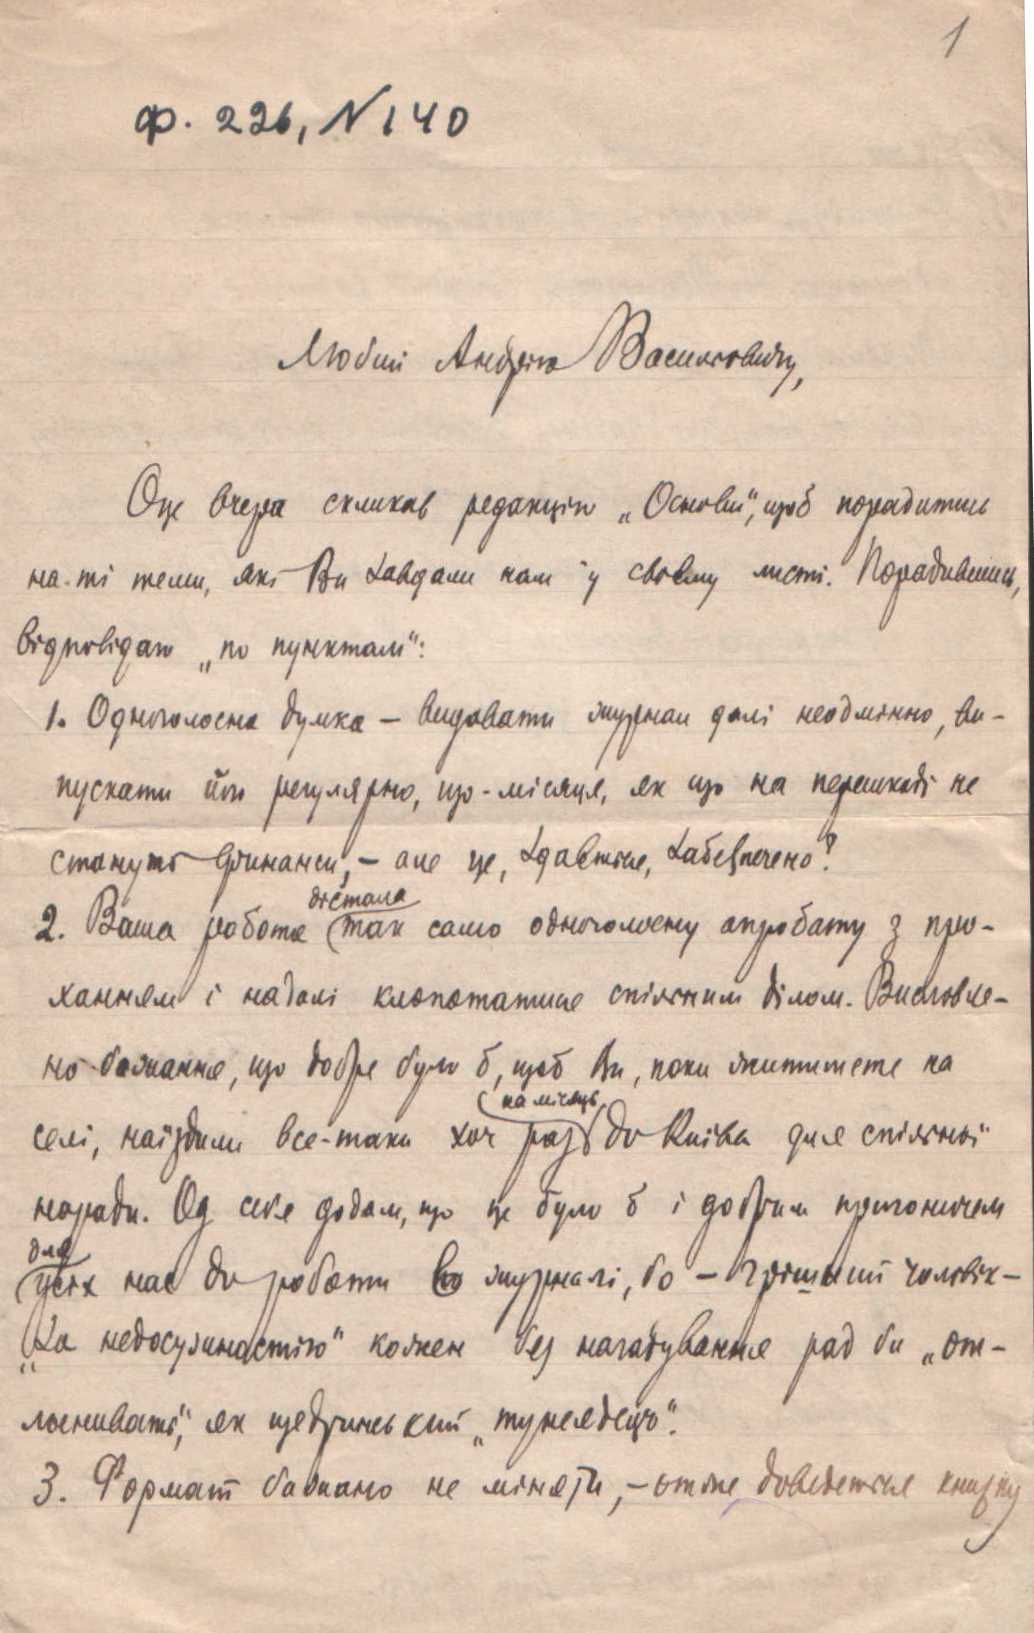 1
ф. 226, N 140
Любий Андрію Васильовичу,
Оце вчера скликав редакцію „Основи“, щоб порадитись
на-ті теми, які Ви завдали нам у своєму листі. Порадившись,
відповідаю „по пунктам“:
1. Одноголосна думка — видавати журнал далі неодмінно, ви-
пускати його регулярно, що-місяця, як що на перешкоді не
стануть финанси, — але це, здається, забезпечено?
дістала
2. Ваша робота так само одноголосну апробату з про-
ханням і надалі клопотатися спільним ділом. Висловле-
но бажання, що добре було б, щоб Ви, поки житимете на
на місяць
селі, наїздили все-таки хоч раз до Київа для спільної
наради. Од себе додам, що це було б і добрим пригоничем
для
усіх нас до роботи в журналі, бо — грішний чоловік —
„за недосужностію“ кожен без нагадування рад би „от-
лынивать“, як щедринський „тунеядецъ“.
3. Формат бажано не міняти, — отже доведеться книгу